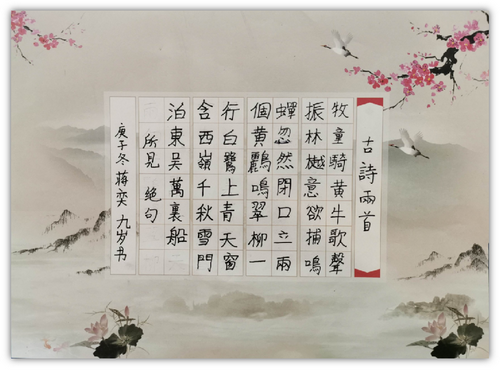 古詩兩首
牧童騎黄牛歌聲
振林樾意欲捕鳴
蟬忽然閉口立兩
個黄鸝鳴翠柳一
行白鷺上青天窗
含西嶺千秋雪門
泊東吴萬裏船
所見 绝句
庚子冬蒋奕九岁书